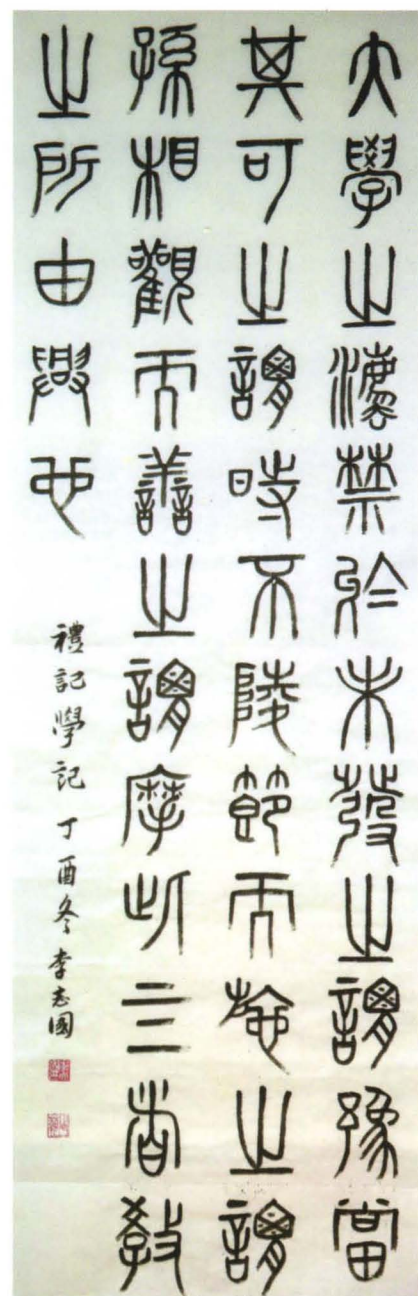 大學之灋禁於未發之謂豫當
其可之謂時不陵節而施之謂
孫相觀而善之謂摩此亖者教
之所由興也
禮記學記 丁酉冬 李志國